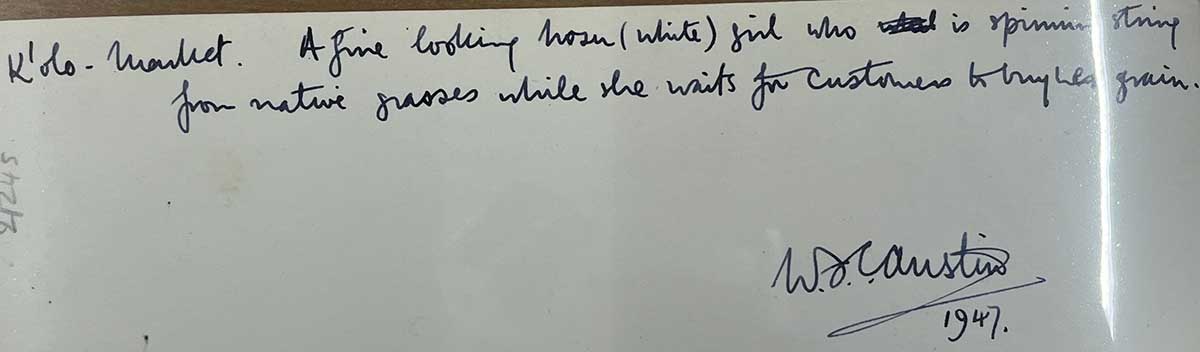 K'olo - Market. A fine looking hosu (white) girl who is spinning string
from native grasses while she waits for customers to buy her grain.
1947.